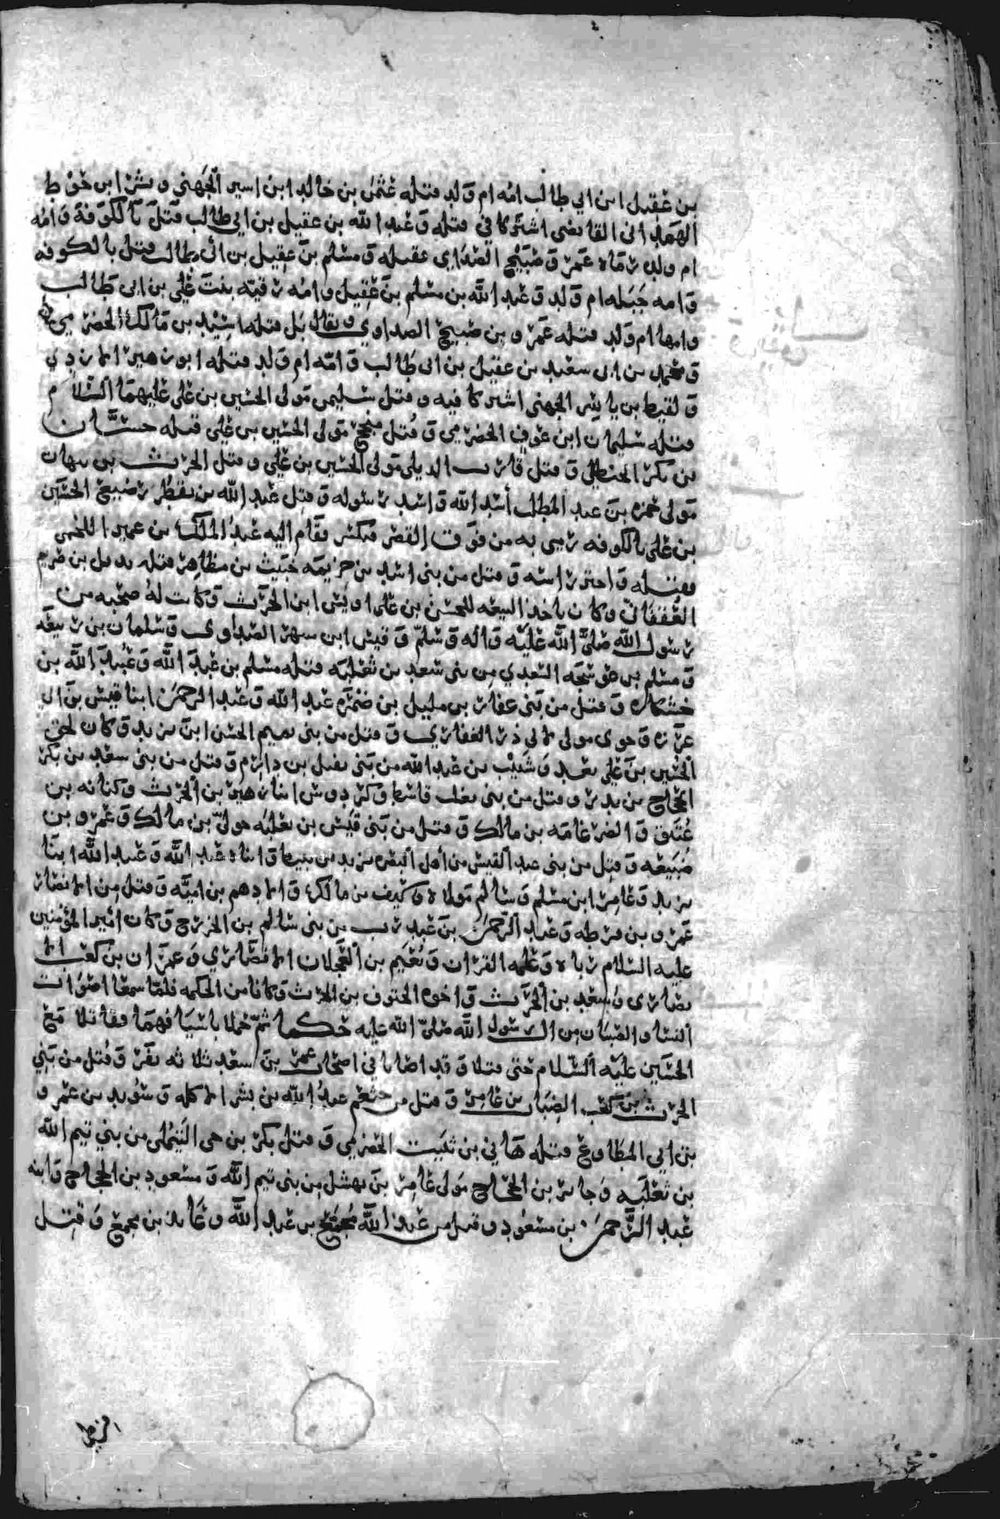 بن عقيل ابن ابي طالب امه ام ولد قتله عثمن بن خالد ابن اسير الجهني وبشر ابن حوط
الهمداني القايضي اشتركا في قتله وعبد الله بن عقيل بن ابي طالب قتل بالكوفة وامه
ام ولد رماه عمرو بن صبيح الصداي عقيله ومسلم بن عقيل بن ابي طالب قتل بالكوفه
وامه حبله ام ولد وعبد الله بن مسلم بن عقيل وامه رقيه بنت علي بن ابي طالب
وامها ام ولد قتله عمرو بن صبيح الصداوي ويقال بل قتله اسيد بن مالك الحضرمي
ومحمد بن ابي سعيد بن عقيل بن ابي طالب وامه ام ولد قتله ابو زهير الازدي
ولقيط بن ياسر الجهني اشتركا فيه وقتل سليمن مولى الحسين بن علي عليهما السلام
قتله سليمان ابن عوف الحضرمي وقتل منجح مولى الحسين بن علي قتله حسان
بن بكر الحنظلي وقتل قارب الديلي مولى الحسين بن علي وقتل الحرث بن نبهان
مولى حمزه بن عبد المطلب أسد الله واسد رسوله وقتل عبد الله بن يقطر رضيع الحسين
بن علي بالكوفه رمي به من فوق القصر فتكسر فقام اليه عبد الملك بن عمير اللخمي
فقتله واحتز راسه وقتل من بني اسد بن خزيمه حبيب بن مظاهر قتله بديل بن صريم
الغفقاني وكان ياخذ البيعه للحسين بن علي وانس ابن الحرث وكانت له صحبه من
رسول الله صلى الله عليه واله وسلم وقيس ابن مسهر الصيداوي وسليمان بن ربيعه
ومسلم بن عوسجه السعدي من بني سعد بن ثعلبه قتله مسلم بن عبد الله وعبيد الله بن
خشكاره وقتل من بني غفار بن مليل بن ضمره عبد الله وعبد الرحمن ابنا قيس بن ابي
عزره وحوى مولى لابي ذر الغفاري وقتل من بني تميم الحر ابن يزيد وكان لحق
الحسين بن علي بعد وشبيب بن عبد الله من بني نفيل بن دارم وقتل من بني سعد بن بكر
الحجاج بن بدر وقتل من بني تغلب قاسط وكردوس ابنا زهير بن الحرث وكنانه بن
عتيق والضرغامه بن مالك وقتل من بني قيس بن ثعلبه حولي بن مالك وعمرو بن
ضبيعه وقتل من بني عبد القيس من اهل البصره يزيد بن ثبيط وابناه عبد الله وعبيد الله ابنا
يزيد وعامر ابن مسلم وسالم مولاه وسيف بن مالك والادهم بن اميه وقتل من الانصار
عمرو بن قرظه وعبد الرحمن بن عبد رب من بني سالم بن الخزرج وكان امير المؤمنين
عليه السلام رباه وعلمه القران ونعيم بن العجلان الانصاري وعمران بن كعب الا
نصاري وسعد بن الحرث واخوه الحتوف بن الحرث وكانا من المحكمه فلما سمعا اصوات
النساء والصبيان من ال رسول الله صلى الله عليه حكما ثم حملا باسيافهما فقاتلا مع
الحسين عليه السلام حتى قتلا وقد اصابا في اصحاب عمر بن سعد ثلاثه نفر وقتل من بني
الحرث بن كعب الضباب بن عامر وقتل من خثعم عبد الله بن بشر الاكله وسويد بن عمرو
بن ابي المطاوع قتله هاني بن ثبيت الحضرمي وقتل بكر بن حي التيملي من بني تيم الله
بن ثعلبه وجابر بن الحجاج مولى عامر بن نهشل من بني تيم الله ومسعود بن الحجاج وابنه
عبد الرحمن بن مسعود وقتل من عبد الله مجمع بن عبد الله وعايذ بن مجمع وقتل